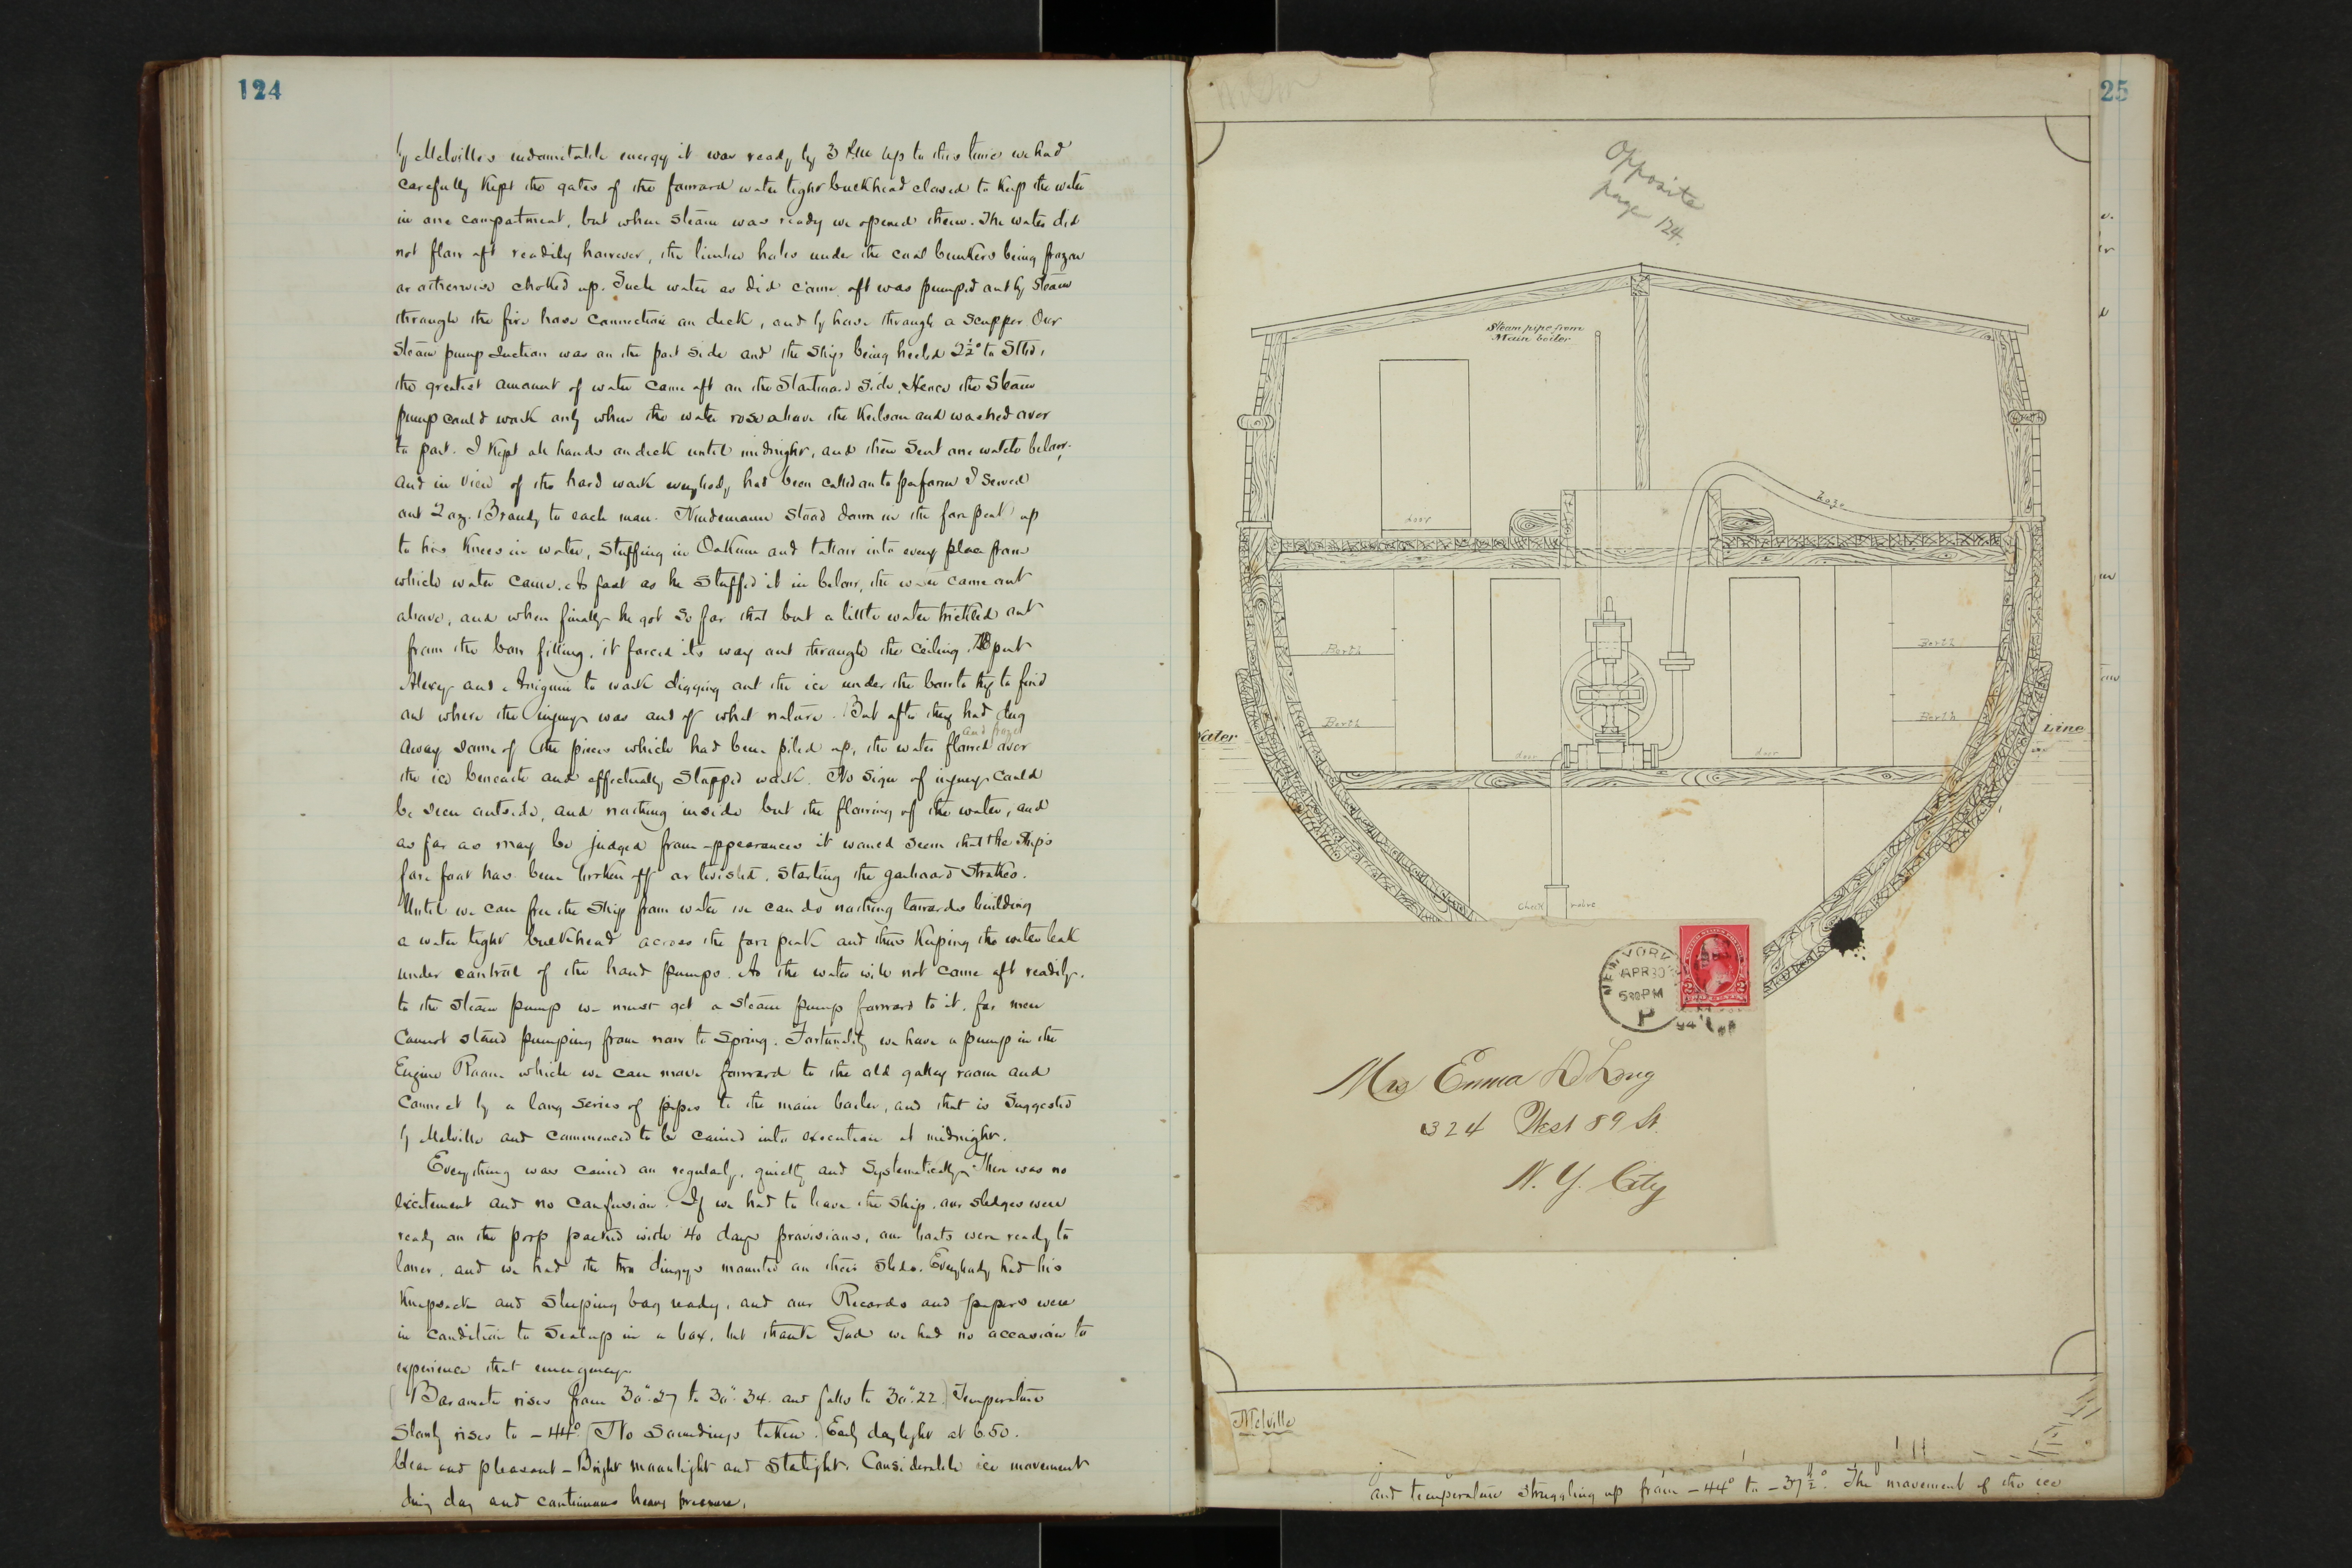 124
by Melville's indomitable energy it was ready by 3 P.M. Up to this time we had
carefully kept the gates of the forward water tight bulkhead closed to keep the water
in one compartment, but when steam was ready we opened them. The water did
not flow aft readily however, the limber holes under the coal bunkers being frozen
or otherwise choked up. Such water as did come aft was pumped out by steam
through the fire hose connection on deck, and by hose through a scupper. Our
steam pump suction was on the port side and the ship being heeled 2½° to Stbd,
the greatest amount of water came aft on the Starboard side. Hence the steam
pump could work only when the water rose above the keelson and washed over
to port. I kept all hands on deck until midnight, and then sent one watch below.
and in view of the hard work everybody had been called on to perform I served
out 2 oz. Brandy to each man. Nindemann stood down in the fore peak up
to his knees in water, stuffing in Oakum and tallow into every place from
which water came. As fast as he stuffed it in below, the water came out
above, and when finally he got so far that but a little water trickled out
from the bow filling, it forced its way out through the ceiling. I put
Alexey and Aniguin to work digging out the ice under the bow to try to find
out where the injury was and of what nature. But after they had dug
and froze
away some of the pieces which had been piled up, the water flowed over
the ice beneath and effectually stopped work. No sign of injury could
be seen outside, and nothing inside but the flowing of the water, and
as far as may be judged from appearances it would seem that the ship's
fore foot has been broken off or twisted, starting the garboard strakes.
Until we can free the ship from water we can do nothing towards building
a water tight bulkhead across the fore peak and thus keeping the water leak
under control of the hand pumps. As the water will not come aft readily
to the steam pump we must get a steam pump forward to it, for men
cannot stand pumping from now to Spring. Fortunately we have a pump in the
Engine Room which we can move forward to the old galley room and
connect by a long series of pipes to the main boiler, and that is suggested
by Melville and commenced to be carried into execution at midnight.
Everything was carried on regularly, quietly and systematically. There was no
excitement and no confusion. If we had to leave the ship, our sledges were
ready on the poop packed with 40 days provisions, our boats were ready to
lower, and we had the two dingys mounted on their sleds. Everybody had his
knapsack and sleeping bag ready, and our Records and papers were
in condition to seal up in a box, but thank God we had no occasion to
experience that emergency.
Barometer rises from 30".27 to 30".34. and falls to 30".22. Temperature
slowly rises to -44°. No soundings taken. Early daylight at 6.50.
Clear and pleasant - Bright moonlight and starlight. Considerable ice movement
during day and continuous heavy pressure.
25
Opposite
page 124.
Steam pipe from
Main boiler
hose
door
Berth
Berth
Berth
Berth
Water
Line
door
door
Check valve
NEW YORK
APR 30
530 PM
94
P
Mrs Emma De Long
324 West 89 St.
N. Y. City
Melville
and temperature struggling up from -44° to -37½°. The movement of the ice